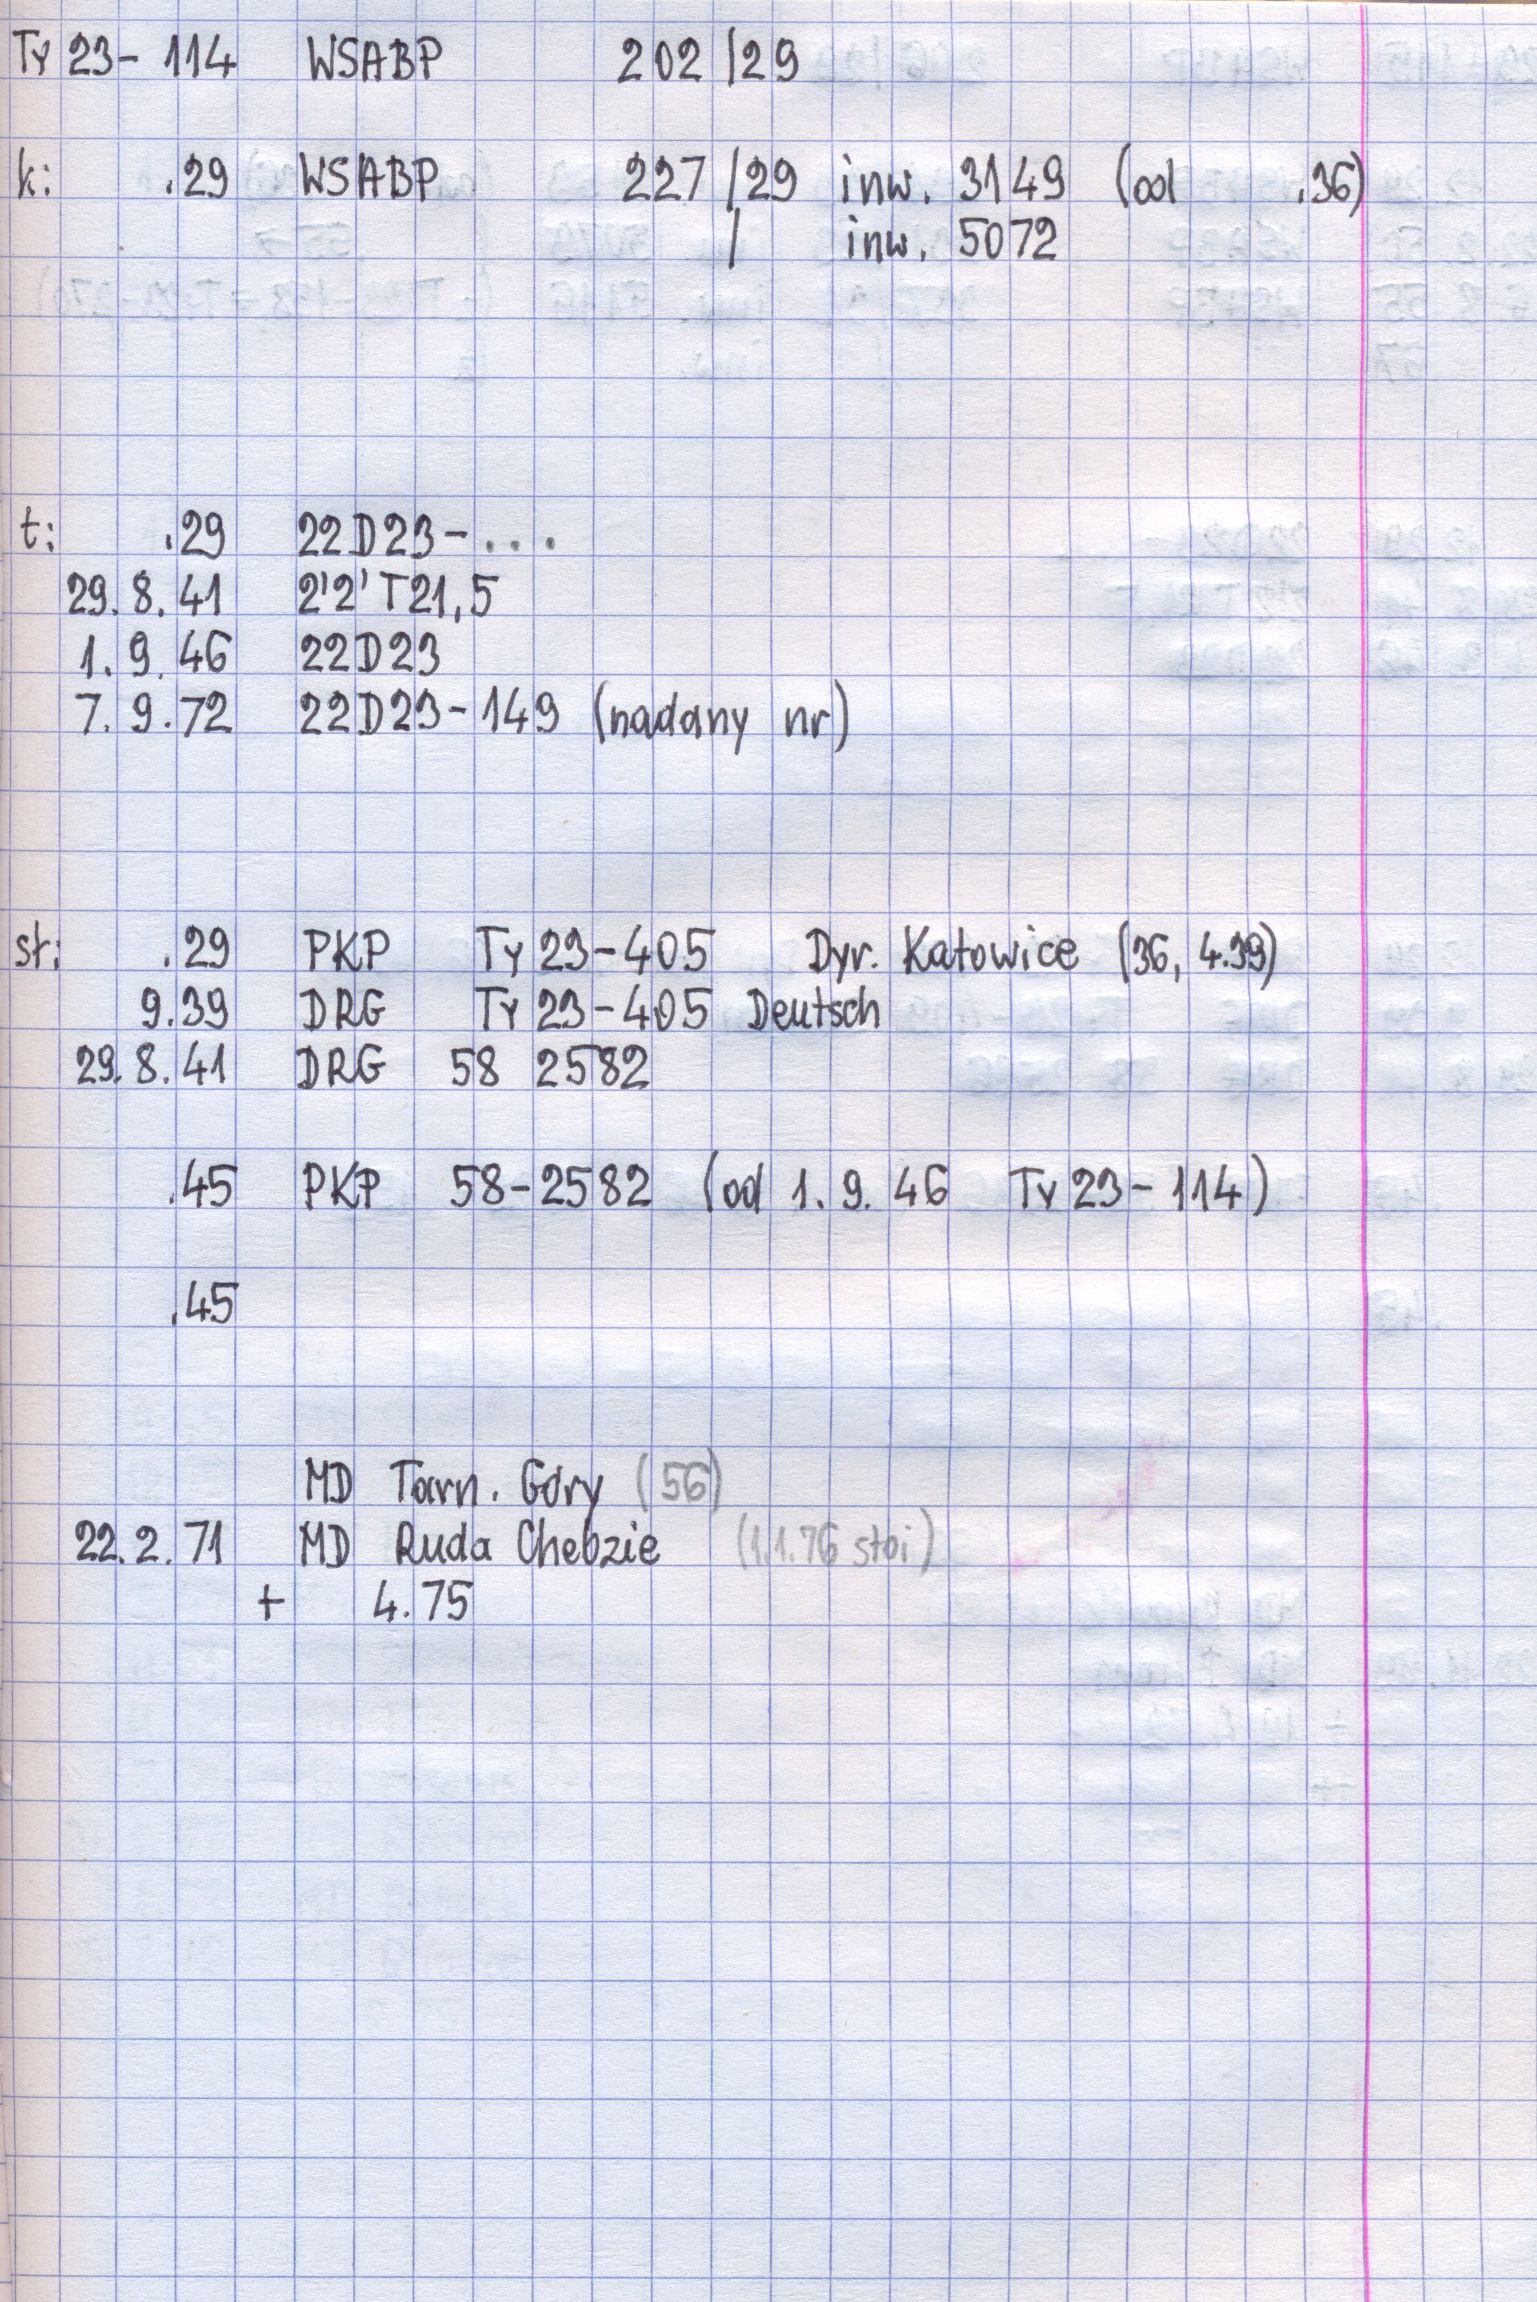 Ty 23- 114 WSABP 202/29
k: .29 WSABP 227/29 inw. 3149 (od .36)
/ inw. 5072
t: .29 22D23-...
29.8.41 2'2'T21,5
1.9.46 22D23
7.9.72 22D23-149 (nadany nr)
sł: .29 PKP Ty 23-405 Dyr. Katowice (36, 4.39)
9.39 DRG Ty 23-405 Deutsch
29.8.41 DRG 58 2582
.45 PKP 58-2582 (od 1.9.46 Ty 23-114)
.45
MD Tarn. Góry (56)
22.2.71 MD Ruda Chebzie (1.1.76 stoi)
+ 4.75